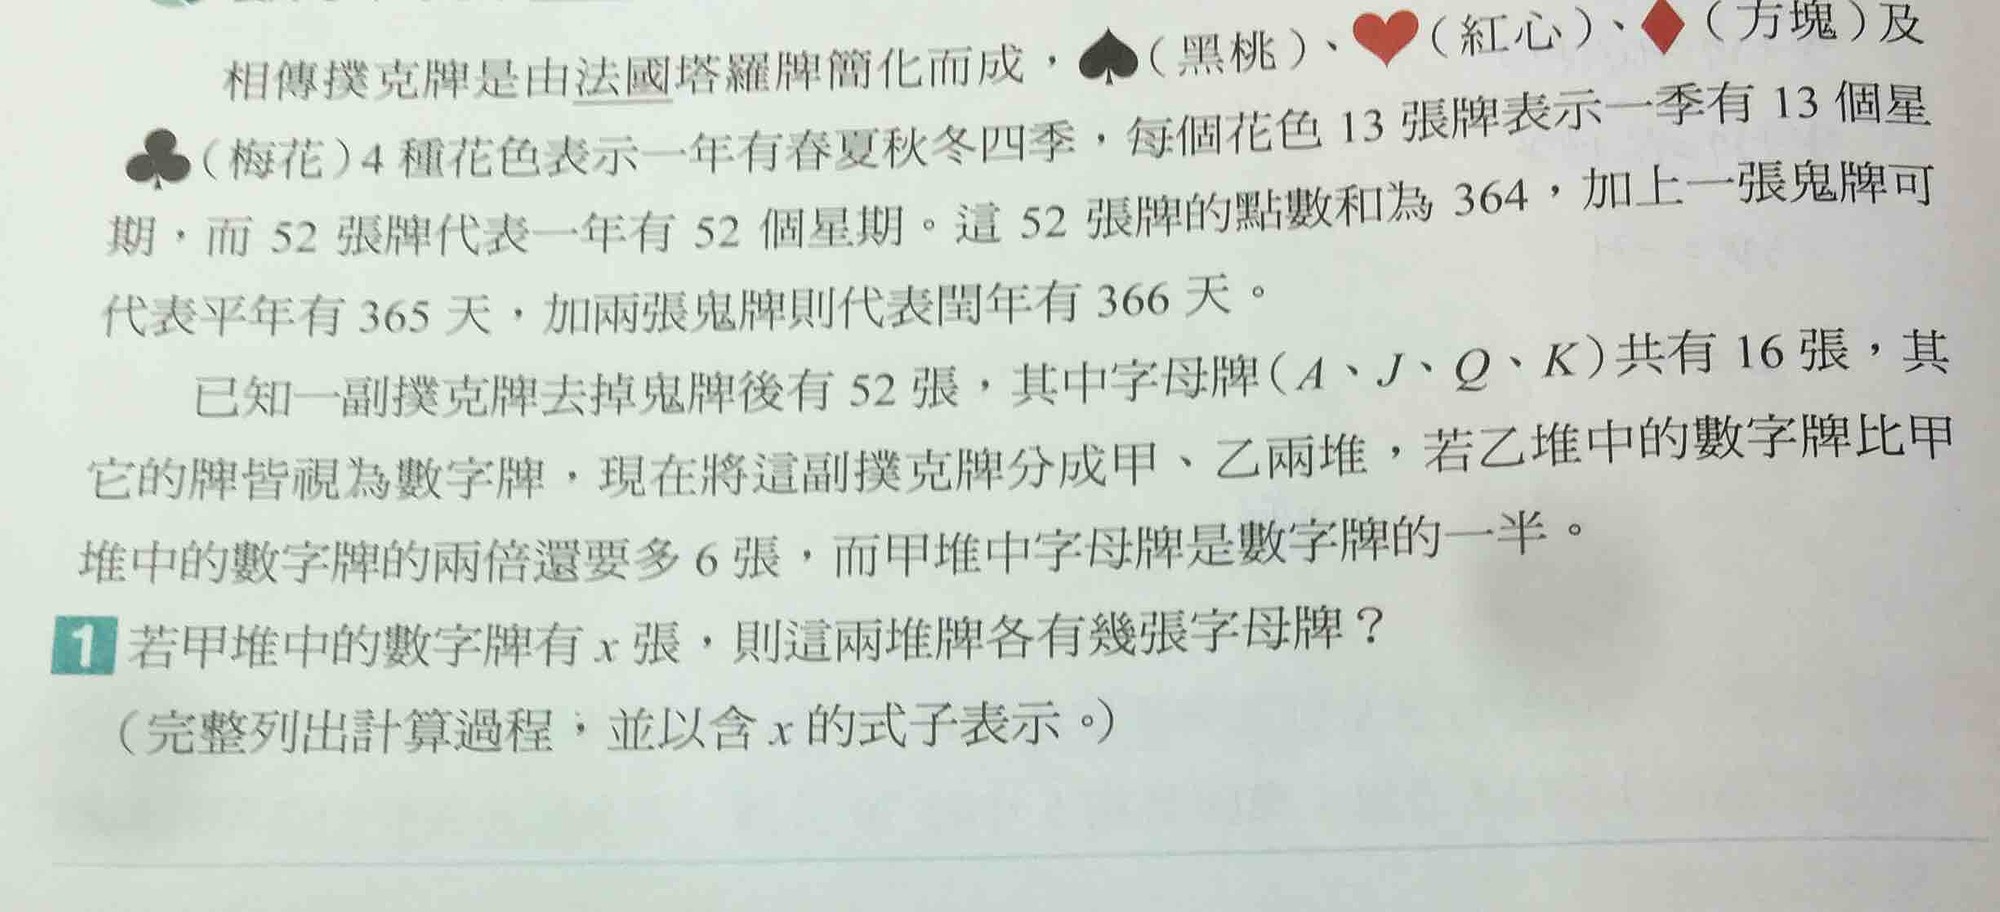 相傳撲克牌是由法國塔羅牌簡化而成，♠(黑桃)、♥(紅心)、♦(方塊)及
♣(梅花)4 種花色表示一年有春夏秋冬四季，每個花色 13 張牌表示一季有 13 個星
期，而 52 張牌代表一年有 52 個星期。這 52 張牌的點數和為 364，加上一張鬼牌可
代表平年有 365 天，加兩張鬼牌則代表閏年有 366 天。
已知一副撲克牌去掉鬼牌後有 52 張，其中字母牌(A、J、Q、K)共有 16 張，其
它的牌皆視為數字牌，現在將這副撲克牌分成甲、乙兩堆，若乙堆中的數字牌比甲
堆中的數字牌的兩倍還要多 6 張，而甲堆中字母牌是數字牌的一半。
1 若甲堆中的數字牌有 x 張，則這兩堆牌各有幾張字母牌？
(完整列出計算過程，並以含 x 的式子表示。)